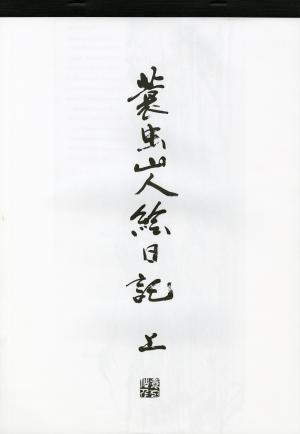 蓑虫山人絵日記 上